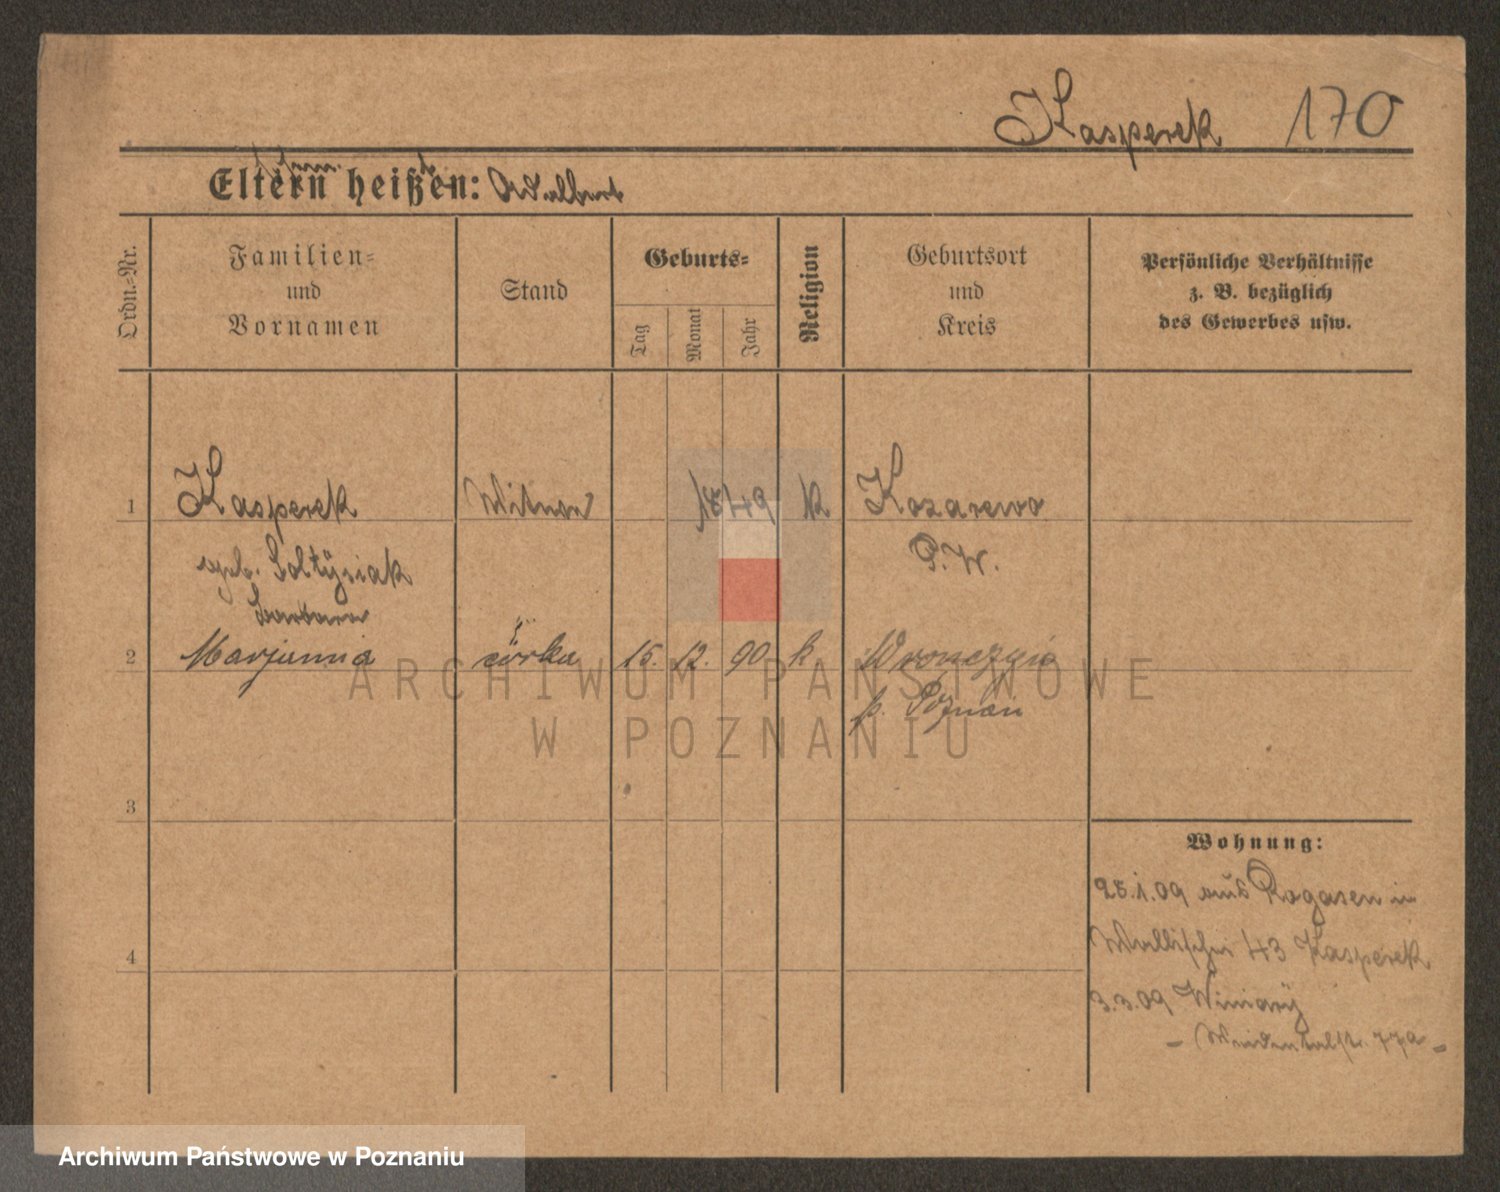 Kasperek 170
Eltern heißen: Adalbert
Ordn.-Nr.
Familien-
und
Vornamen
Stand
Geburts-
Tag
Monat
Jahr
Religion
Geburtsort
und
Kreis
Persönliche Verhältnisse
z. B. bezüglich
des Gewerbes usw.
1 Kasperek Witwe 1849 k Kozarewo
geb. Soltysiak P.W.
Barbara
2 Marjanna córka 15. 12. 90 k Wronczyn
p. Poznań
3
4
Wohnung:
25.1.09 aus Rogasen in
Wallischei 43 Kasperek
3.3.09 Winiary
77a -
ARCHIWUM PAŃSTWOWE
W POZNANIU
Archiwum Państwowe w Poznaniu